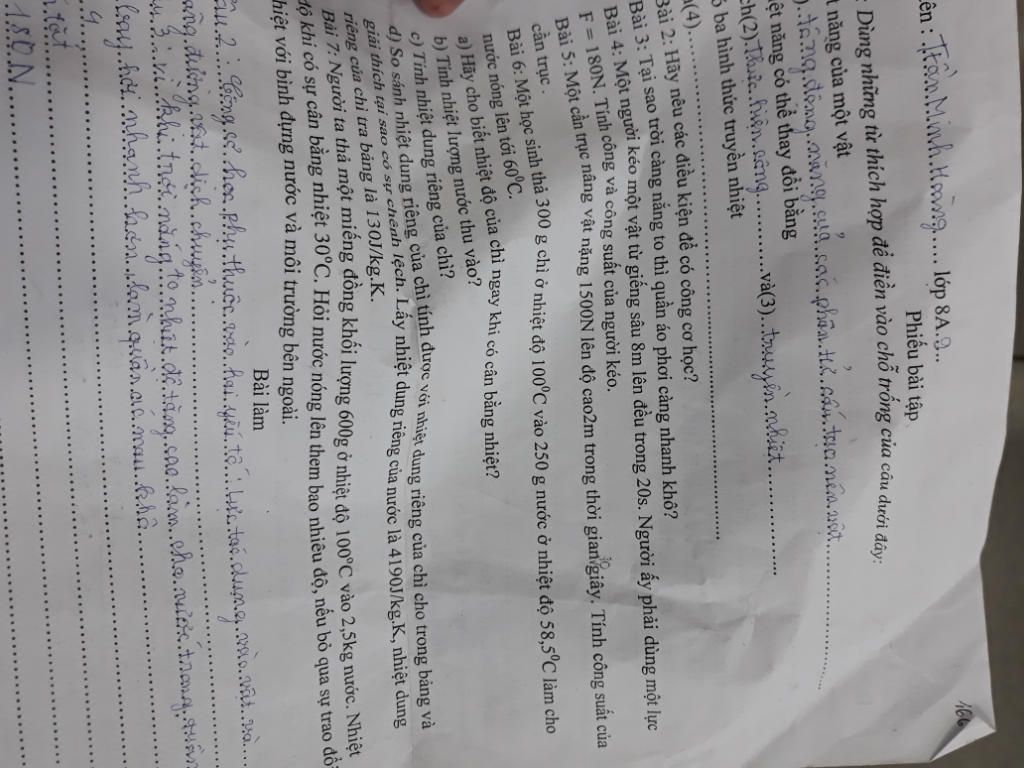 166
ên : Trần Minh Hoàng.... lớp 8A.9..
Phiếu bài tập
: Dùng những từ thích hợp để điền vào chỗ trống của câu dưới đây:
t năng của một vật
).tổng động năng của các phân tử cấu tạo nên vật
ệt năng có thể thay đổi bằng
ch(2).Thực hiện công...........và(3)..truyền nhiệt...........
ó ba hình thức truyền nhiệt
à(4)...........
Bài 2: Hãy nêu các điều kiện để có công cơ học?
Bài 3: Tại sao trời càng nắng to thì quần áo phơi càng nhanh khô?
Bài 4: Một người kéo một vật từ giếng sâu 8m lên đều trong 20s. Người ấy phải dùng một lực
F = 180N. Tính công và công suất của người kéo.
Bài 5: Một cần trục nâng vật nặng 1500N lên độ cao2m trong thời gian giây. Tính công suất của
cần trục .
Bài 6: Một học sinh thả 300 g chì ở nhiệt độ 100°C vào 250 g nước ở nhiệt độ 58,5°C làm cho
nước nóng lên tới 60°C.
a) Hãy cho biết nhiệt độ của chì ngay khi có cân bằng nhiệt?
b) Tính nhiệt lượng nước thu vào?
c) Tính nhiệt dung riêng của chì?
d) So sánh nhiệt dung riêng của chì tính được với nhiệt dung riêng của chì cho trong bảng và
giải thích tại sao có sự chênh lệch. Lấy nhiệt dung riêng của nước là 4190J/kg.K, nhiệt dung
riêng của chì tra bảng là 130J/kg.K.
Bài 7: Người ta thả một miếng đồng khối lượng 600g ở nhiệt độ 100°C vào 2,5kg nước. Nhiệt
độ khi có sự cân bằng nhiệt 30°C. Hỏi nước nóng lên them bao nhiêu độ, nếu bỏ qua sự trao đổi
hiệt với bình đựng nước và môi trường bên ngoài.
Bài làm
âu 2 : Công cơ học phụ thuộc vào hai yếu tố : Lực tác dụng vào vật và
ãng đường vật dịch chuyển
âu 3 : vì khi trời nắng to nhiệt độ tăng cao làm cho nước trong quần
bay hơi nhanh hơn làm quần áo mau khô
4
tắt
180N